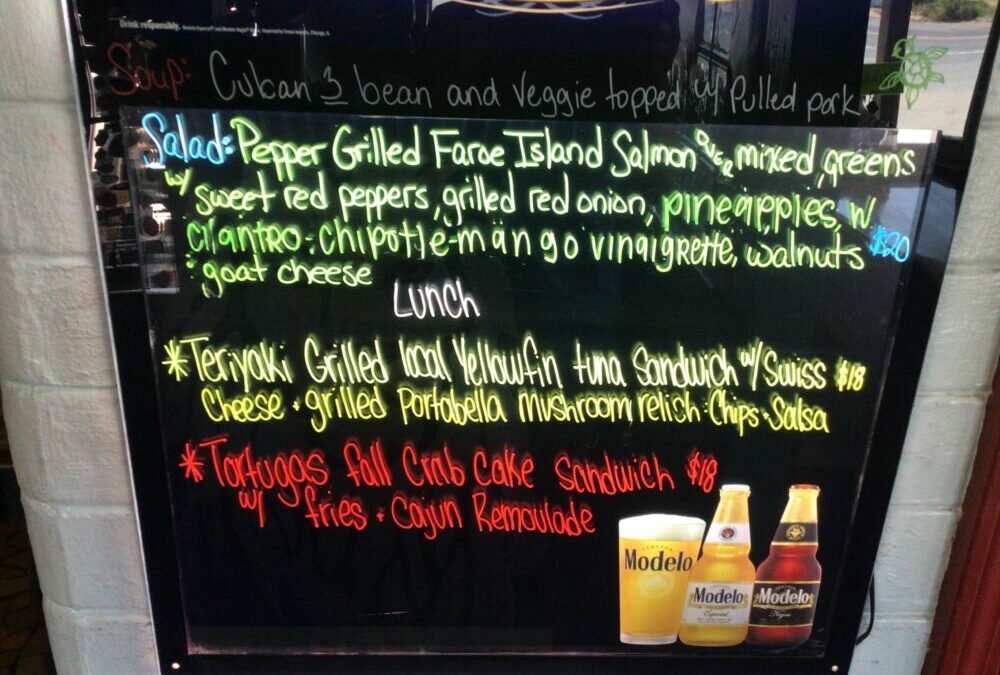 Drink responsibly.
Soup: Cuban 3 bean and veggie topped w/ Pulled pork
Salad: Pepper Grilled Faroe Island Salmon over mixed greens
w/ sweet red peppers, grilled red onion, pineapples, w
cilantro-chipotle-mango vinaigrette, walnuts $20
+ goat cheese
Lunch
*Teriyaki Grilled local Yellowfin tuna Sandwich w/ Swiss $18
Cheese + grilled Portabella mushroom relish + Chips + Salsa
*Tortugas fall Crab Cake Sandwich $18
w/ fries + Cajun Remoulade
CERVEZA
Modelo
Modelo
Especial
Modelo
Negra